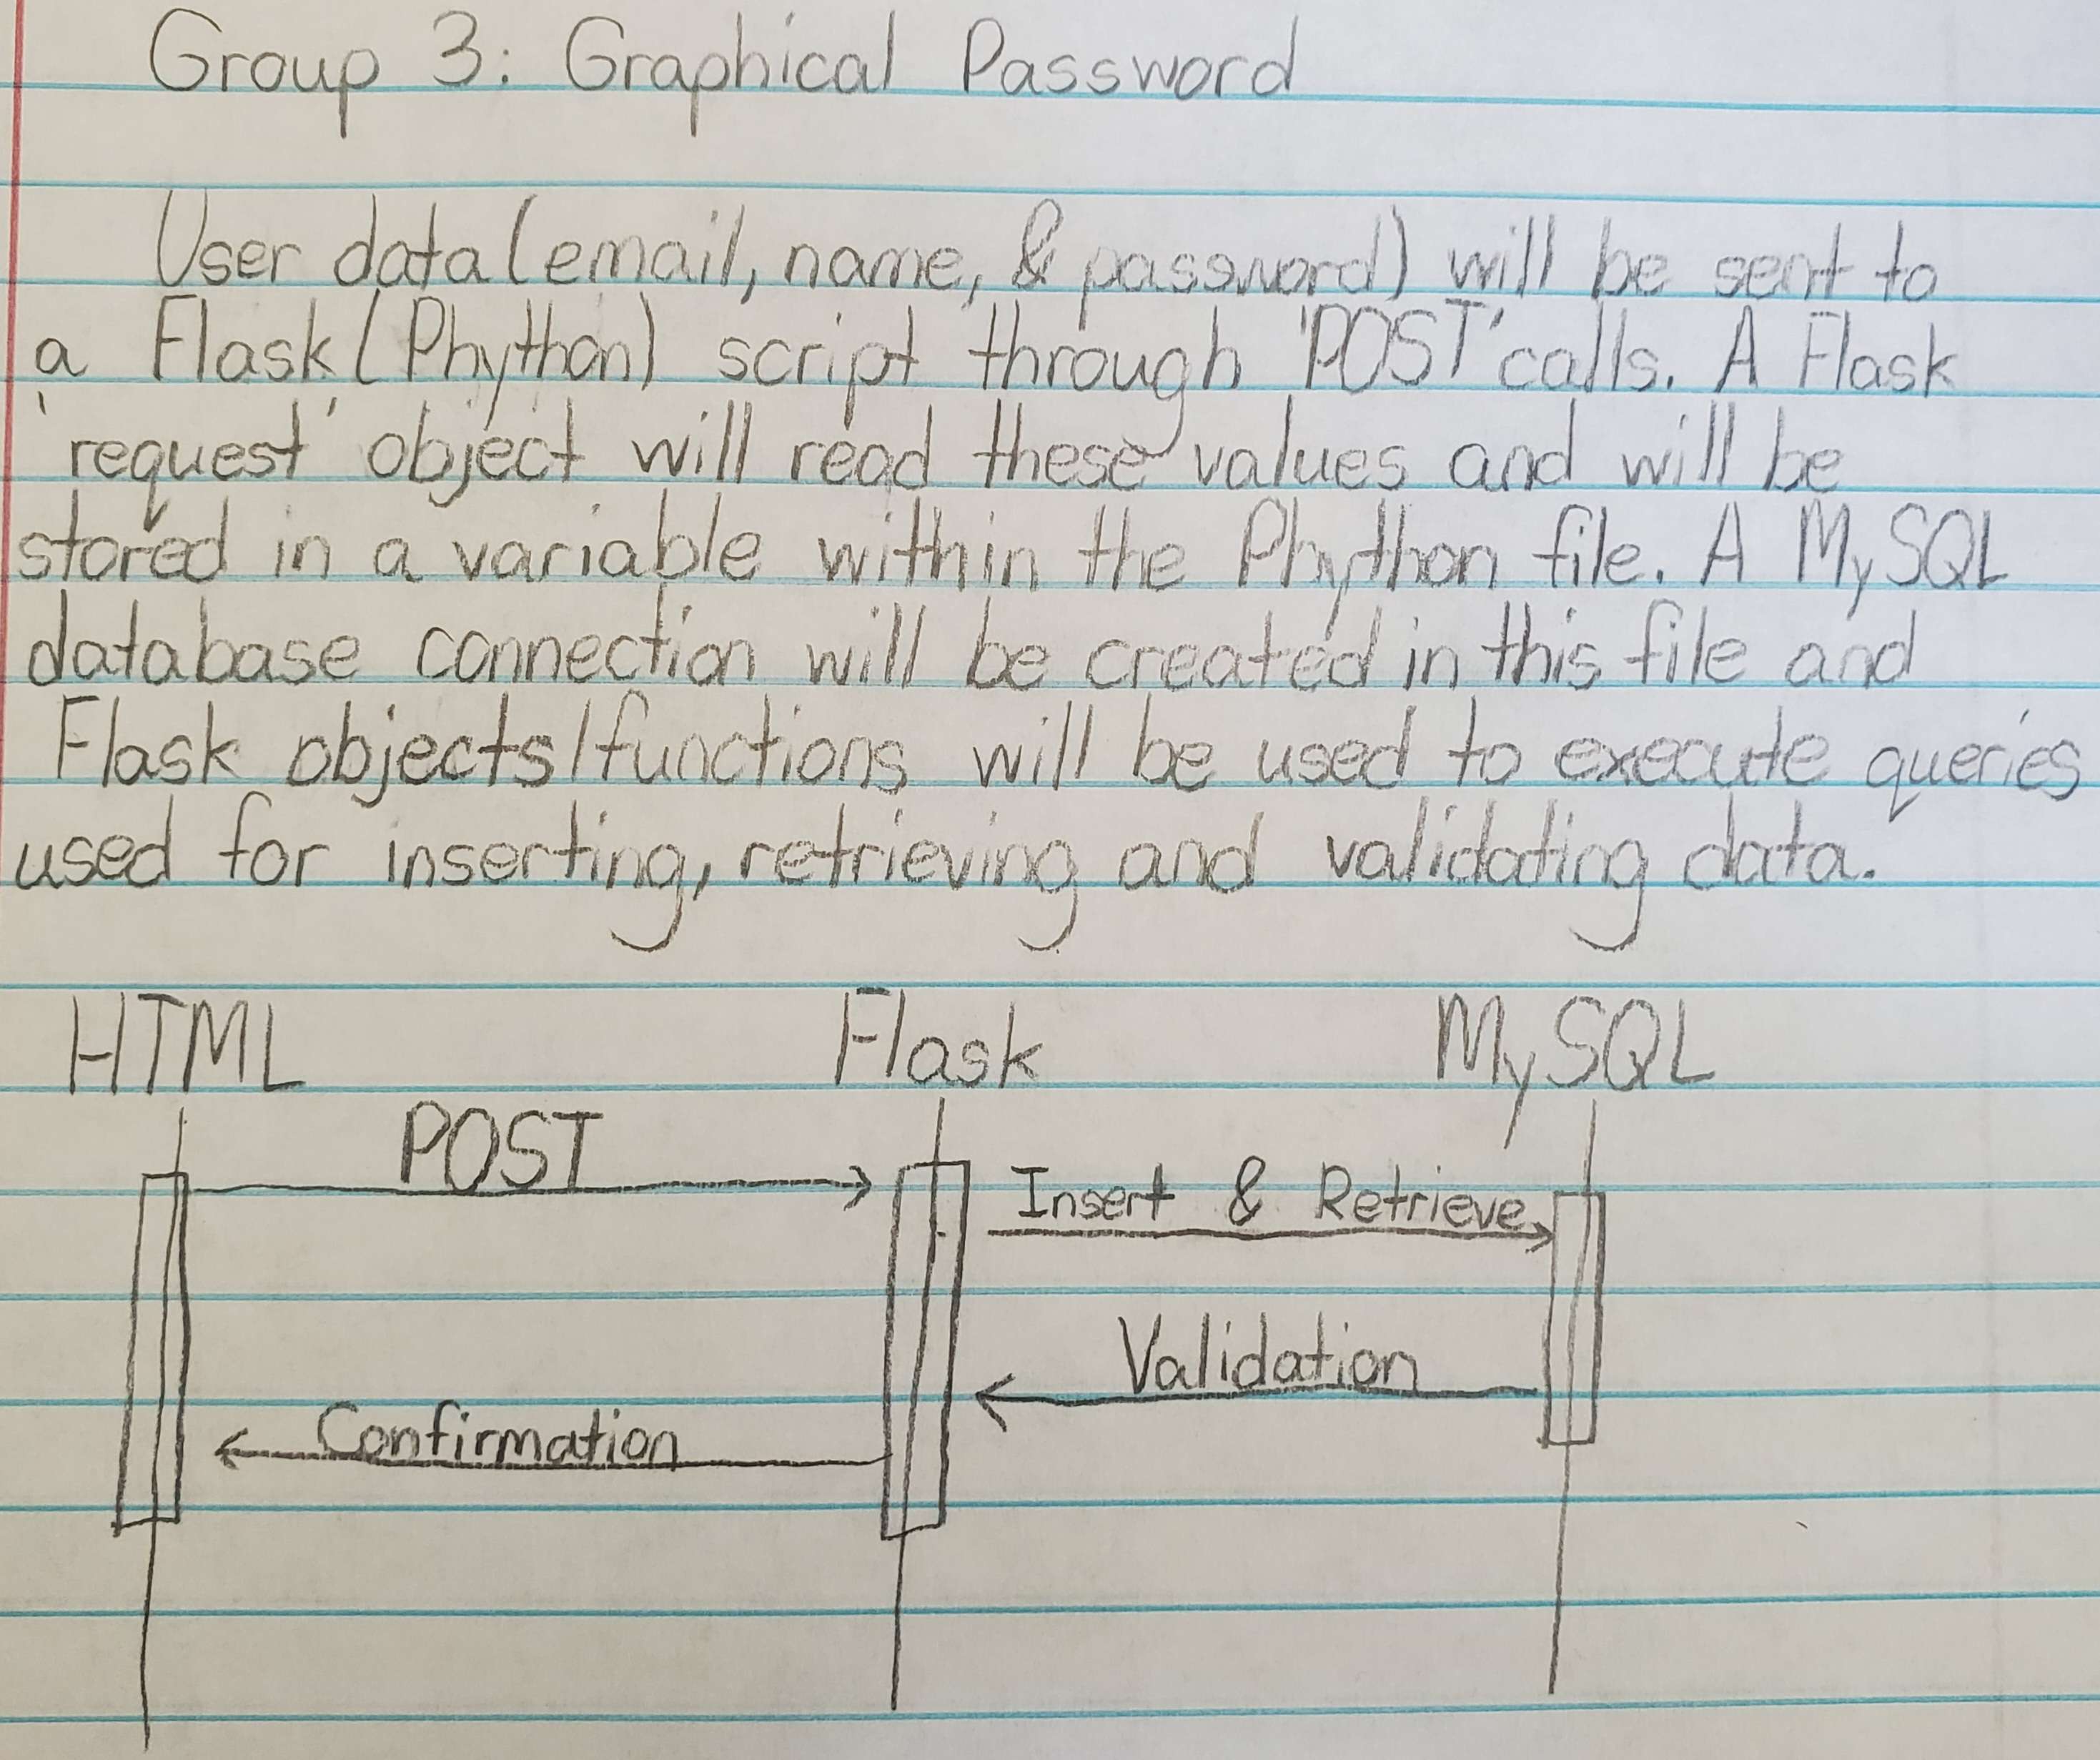 Group 3: Graphical Password
User data (email, name, & password) will be sent to
a Flask (Phython) script through 'POST' calls. A Flask
'request' object will read these values and will be
stored in a variable within the Phython file. A MySQL
database connection will be created in this file and
Flask objects/functions will be used to execute queries
used for inserting, retrieving and validating data.
HTML Flask MySQL
POST
Insert & Retrieve
Validation
Confirmation